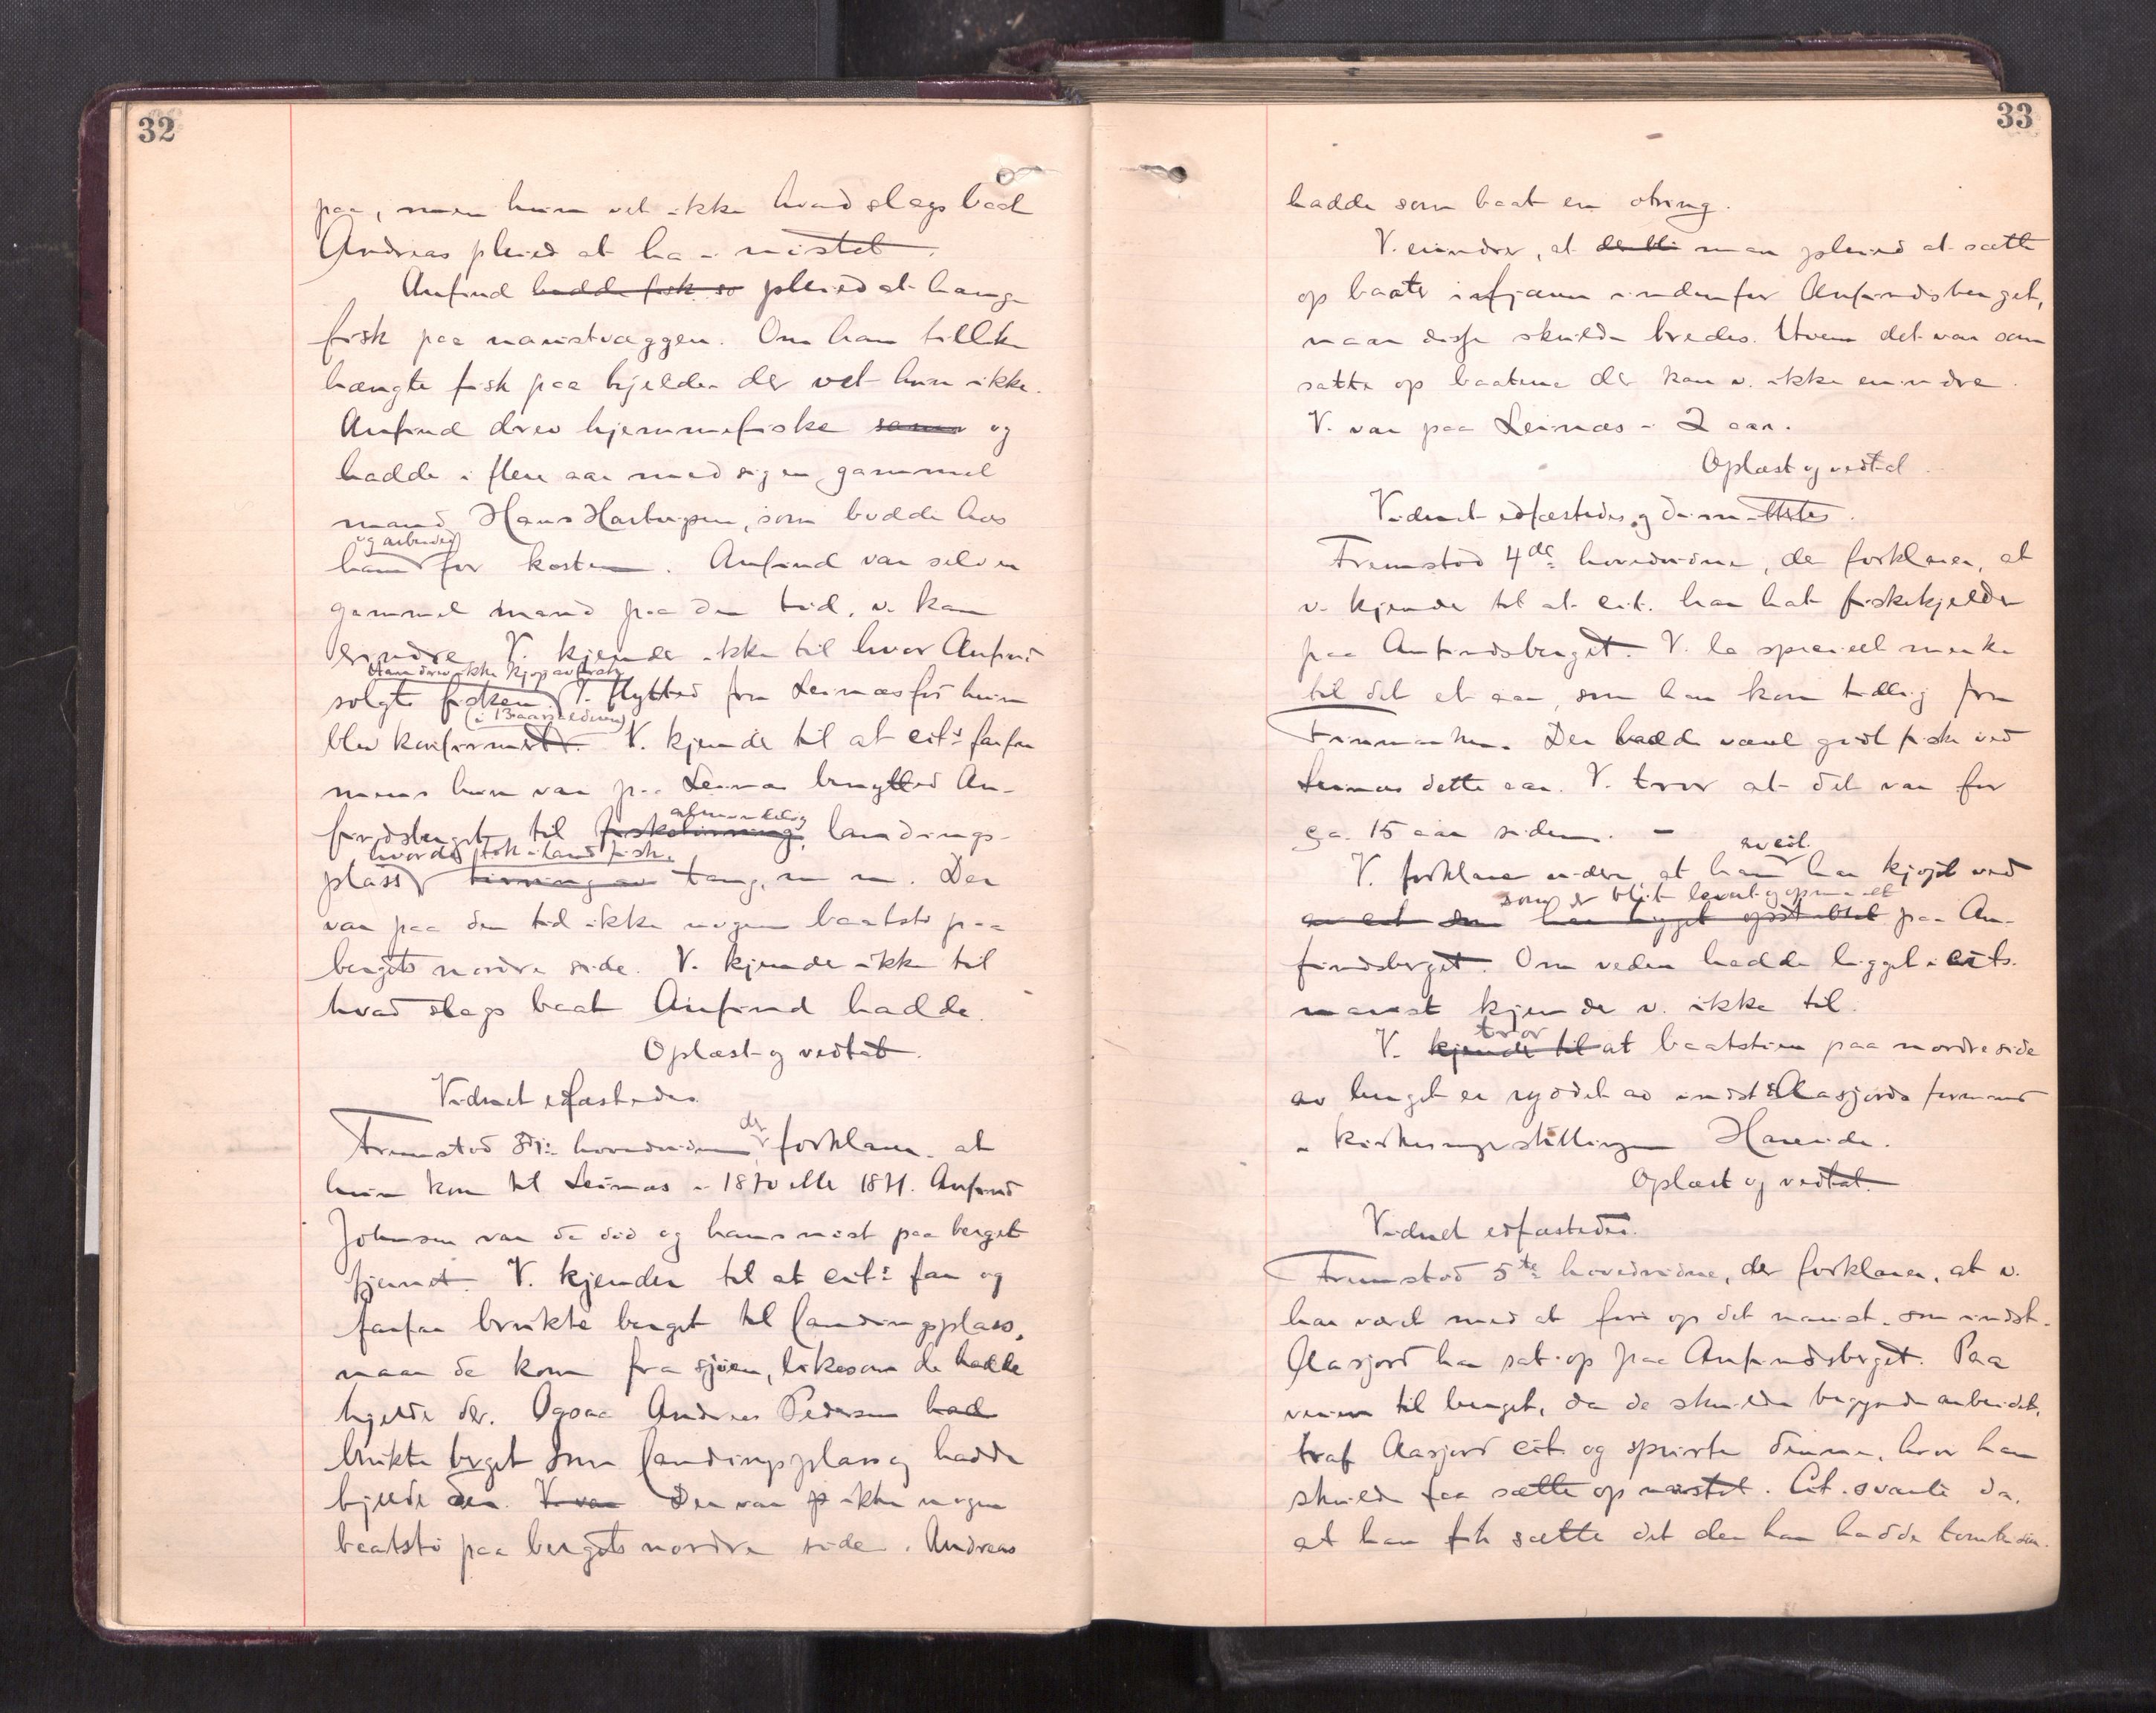 32
paa, men hun vet ikke hvad slags baat
Andreas pleied at ha i nøstet.
Anfind hadde fisk so pleied at hænge
fisk paa naustvæggen. Om han tillike
hængte fisk paa hjelder der vet hun ikke.
Anfind drev hjemmefiske samm og
hadde i flere aar med sig en gammel
mand Hans Hartvigsen, som bodde hos
og arbeided
ham for kosten. Anfind var selv en
gammel mand paa den tid, v. kan
erindre. V. kjender ikke til hvor Anfind
Han drev ikke kjøp av fisk
solgte fisken. V. flytted fra Leinæs før hun
(i 13 aarsalderen)
blev konfirmert. V. kjender til at cit.s farfar
mens hun var paa Leinæs benytted An-
almindelig
findsberget til fisketirning, landings-
hvor de tok iland fisk,
plass tirning av tang, m m. Der
var paa den tid ikke nogen baatstø paa
bergets nordre side. V. kjender ikke til
hvad slags baat Anfind hadde.
Oplæst og vedtat.
Vidnet edfæstedes.
der
Fremstod 3dje hovedvidne, forklarer, at
hun kom til Leinæs i 1870 eller 1871. Anfind
Johnsen var da død og hans nøst paa berget
fjernet. V. kjender til at cit.s far og
farfar brukte berget til landingsplass,
naar de kom fra sjøen, likesom de hadde
hjelde der. Ogsaa Andreas Pedersen had
brukte berget som landingsplass og hadde
hjelde der. V. var Der var p ikke nogen
baatstø paa bergets nordre side. Andreas
33
hadde som baat en otring.
V. erindrer, at der bli man pleied at sætte
op baate i fjæren indenfor Anfindsberget,
naar disse skulde bredes. Hvem det var som
satte op baatene der kan v. ikke erindre.
V. var paa Leinæs i 2 aar.
Oplæst og vedtat.
Vidnet edfæstedes og dimitteredes.
Fremstod 4de hovedvidne, der forklarer, at
v. kjender til at cit. har hat fiskehjelder
paa Anfindsberget. V. la specielt merke
til det et aar, som han kom tidlig fra
Finmarken. Der hadde været godt fiske ved
Leinæs dette aar. V. tror at det var for
ca. 15 aar siden. –
av cit.
V. forklarer videre at han har kjøpt ved
som er blit levert og opmaalt
av cit som har ligget opstablet paa An-
findsberget. Om veden hadde ligget i cits.
naust kjender v. ikke til.
tror
V. kjender til at baatstøen paa nordre side
av berget er ryddet av indst. Aasjords formand
i kirkesangerstillingen Hareide.
Oplæst og vedtat.
Vidnet edfæstedes.
Fremstod 5te hovedvidne, der forklarer, at v.
har været med at føre op det naust, som indst.
Aasjord har sat op paa Anfindsberget. Paa
veien til berget, da de skulde begynde arbeidet,
traf Aasjord cit. og spurte denne, hvor han
skulde faa sætte op naustet. Cit. svarte da,
at han fik sætte det der han hadde